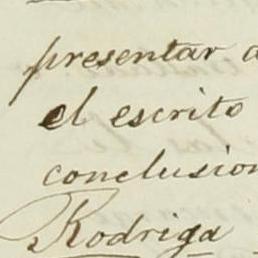 presentar a
el escrito
conclusion
Rodriga